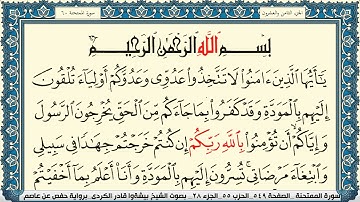 الجزء الثامن والعشرون
سورة الممتحنة ٦٠
بِسْمِ اللَّهِ الرَّحْمَٰنِ الرَّحِيمِ
يَٰٓأَيُّهَا الَّذِينَ ءَامَنُوا لَا تَتَّخِذُوا عَدُوِّى وَعَدُوَّكُمْ أَوْلِيَآءَ تُلْقُونَ
إِلَيْهِم بِالْمَوَدَّةِ وَقَدْ كَفَرُوا بِمَا جَآءَكُم مِّنَ الْحَقِّ يُخْرِجُونَ الرَّسُولَ
وَإِيَّاكُمْ أَن تُؤْمِنُوا بِاللَّهِ رَبِّكُمْ إِن كُنتُمْ خَرَجْتُمْ جِهَٰدًا فِى سَبِيلِى
وَابْتِغَآءَ مَرْضَاتِى تُسِرُّونَ إِلَيْهِم بِالْمَوَدَّةِ وَأَنَا۠ أَعْلَمُ بِمَآ أَخْفَيْتُمْ
سورة الممتحنة . الصفحة ٥٤٩ . الحزب ٥٥ . الجزء ٢٨ . بصوت الشيخ بيشةوا قادر الكردى . برواية حفص عن عاصم